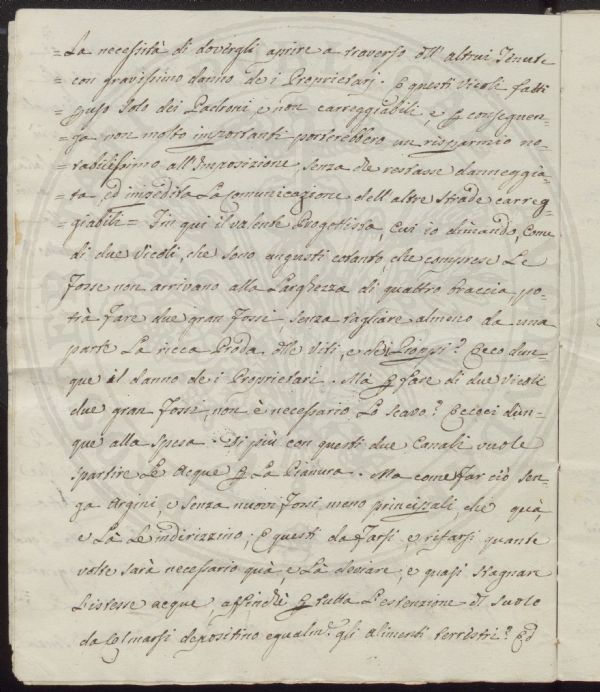 = La necessità di dovergli aprire a traverso dell' altrui Tenute
= con gravissimo danno de i Proprietarj. E questi Vicoli fatti
= uso solo dei Padroni, e non carreggiabili, e p conseguen-
= za non molto importanti porterebbero un risparmio no-
= tabilissimo all'Imposizione, senza che restasse danneggia-
= ta, ed impedita La comunicazione dell'altre Strade carreg-
= giabili = Fin qui il valente Progettista, Cui io dimando, Come
di due Vicoli, che sono angusti cotanto, che comprese Le
Fosse non arrivano alla Larghezza di quattro braccia, po-
trà fare due gran Fossi, senza tagliare almeno da una
parte La ricca Proda delle Viti, e dei Pioppi? Ecco dun-
que il danno de i Proprietari. Mà p fare di due Vicoli
due gran Fossi, non è necessario Lo scavo? Eccoci dun-
que alla spesa. Di più con questi due Canali vuole
spartire Le Acque p La Pianura. Ma come far ciò sen-
za Argini, e senza nuovi Fossi meno principali, che quà,
e Là Le indirizzino; E questi da farsi, e rifarsi quante
volte sarà necessario quà, e Là deviare, e quasi stagnare
L'istesse acque, affinchè p tutta L'estenzione del suolo
da Colmarsi depositino egualm.e gli alimenti terrestri? Ed